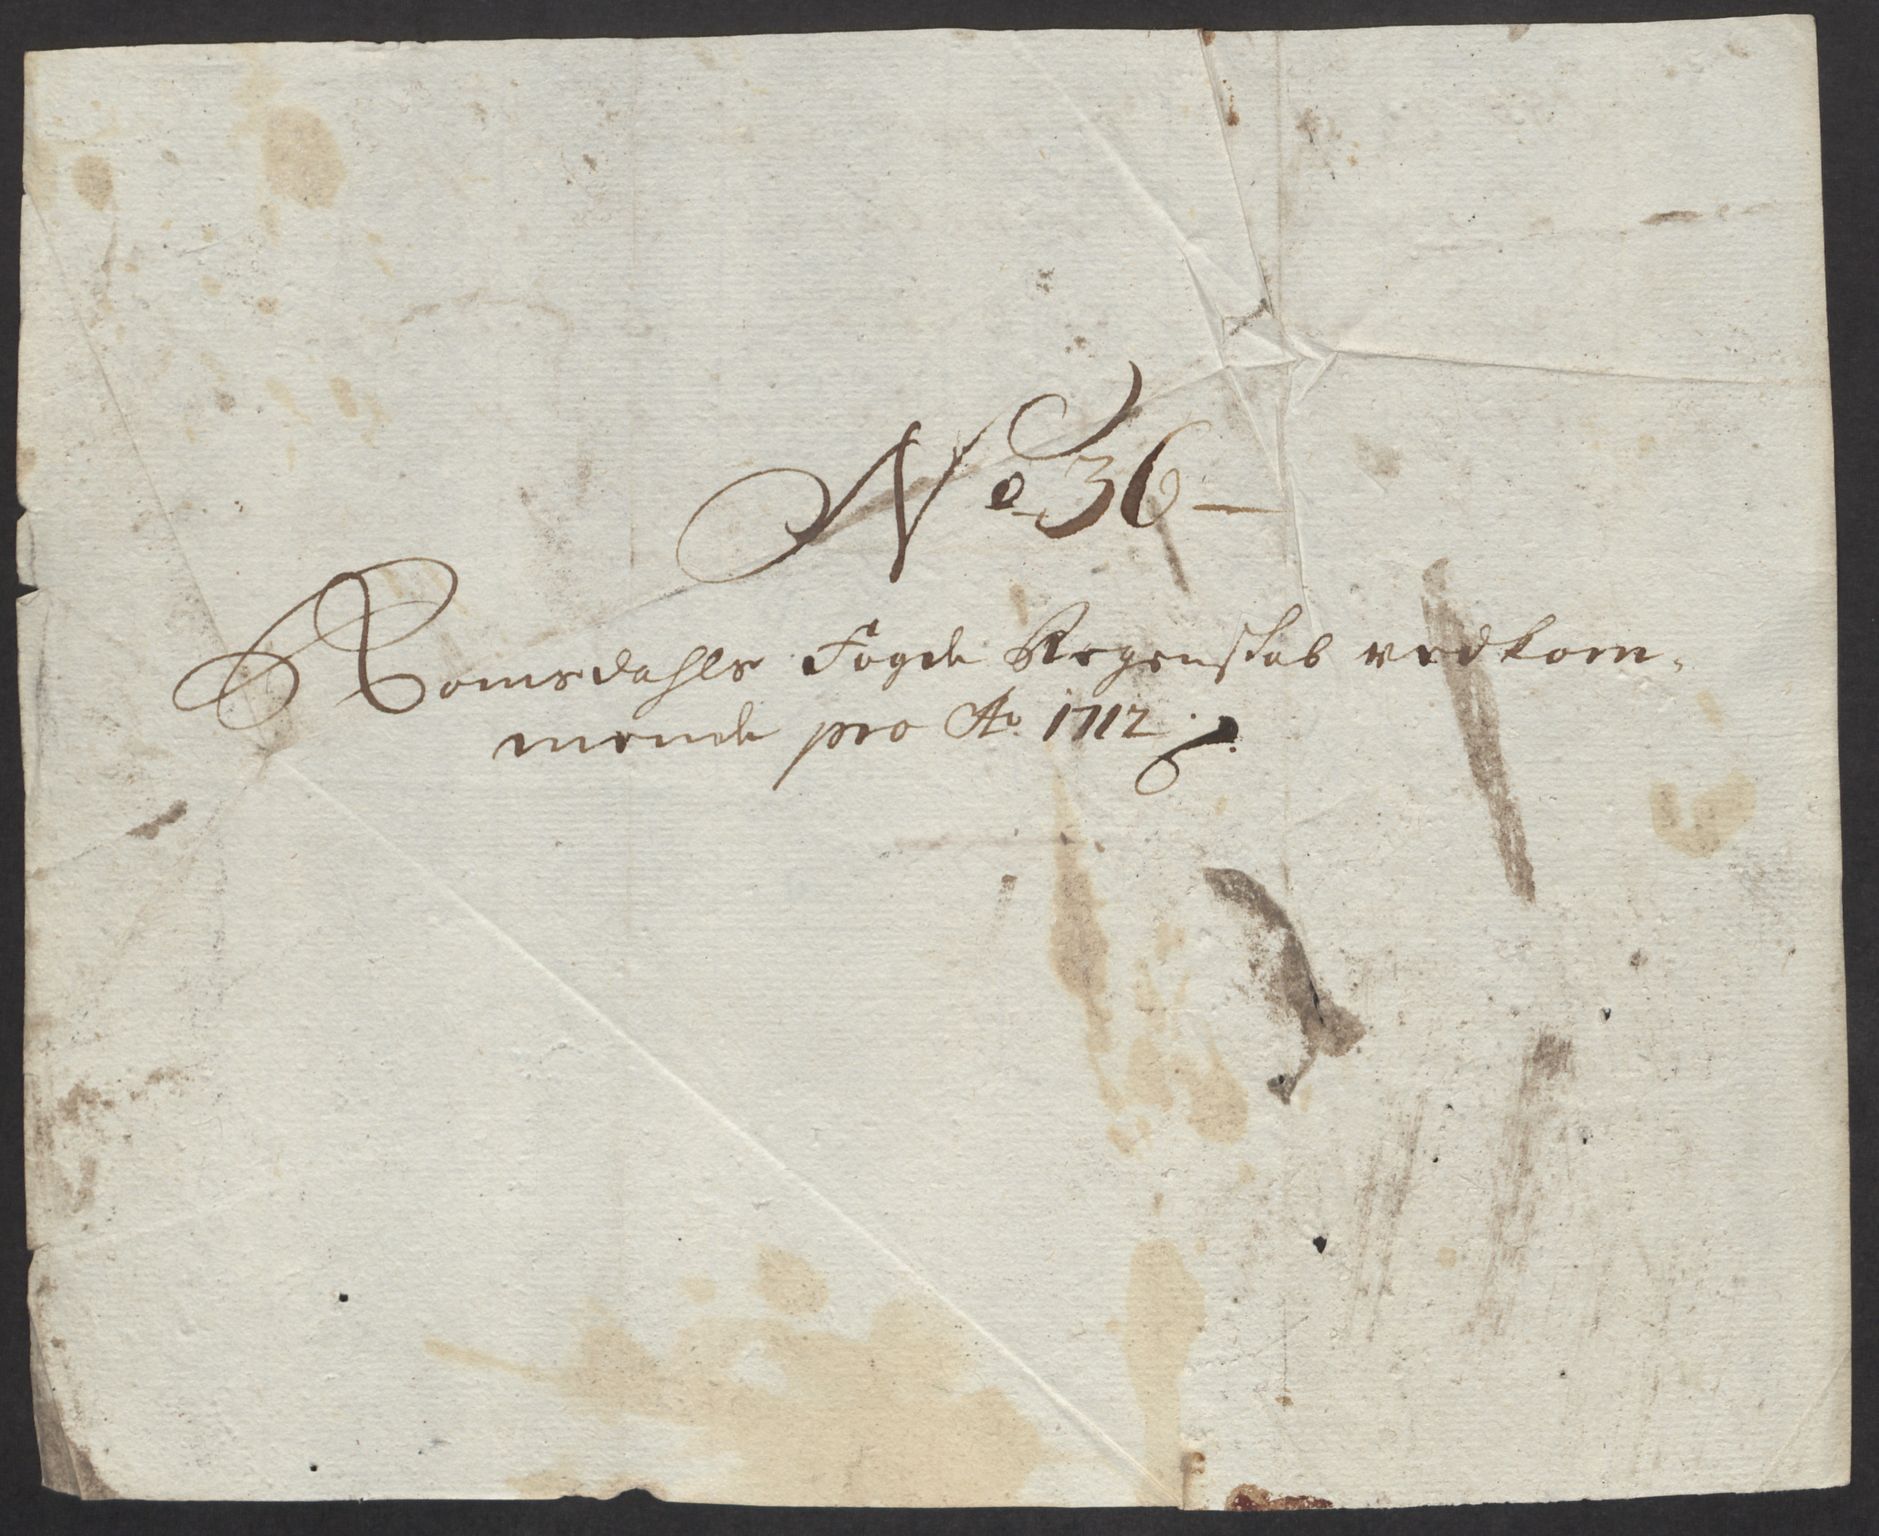 No 36 –
Romsdahls Fogde Regenskab vedkom-
mende pro Ao. 1712